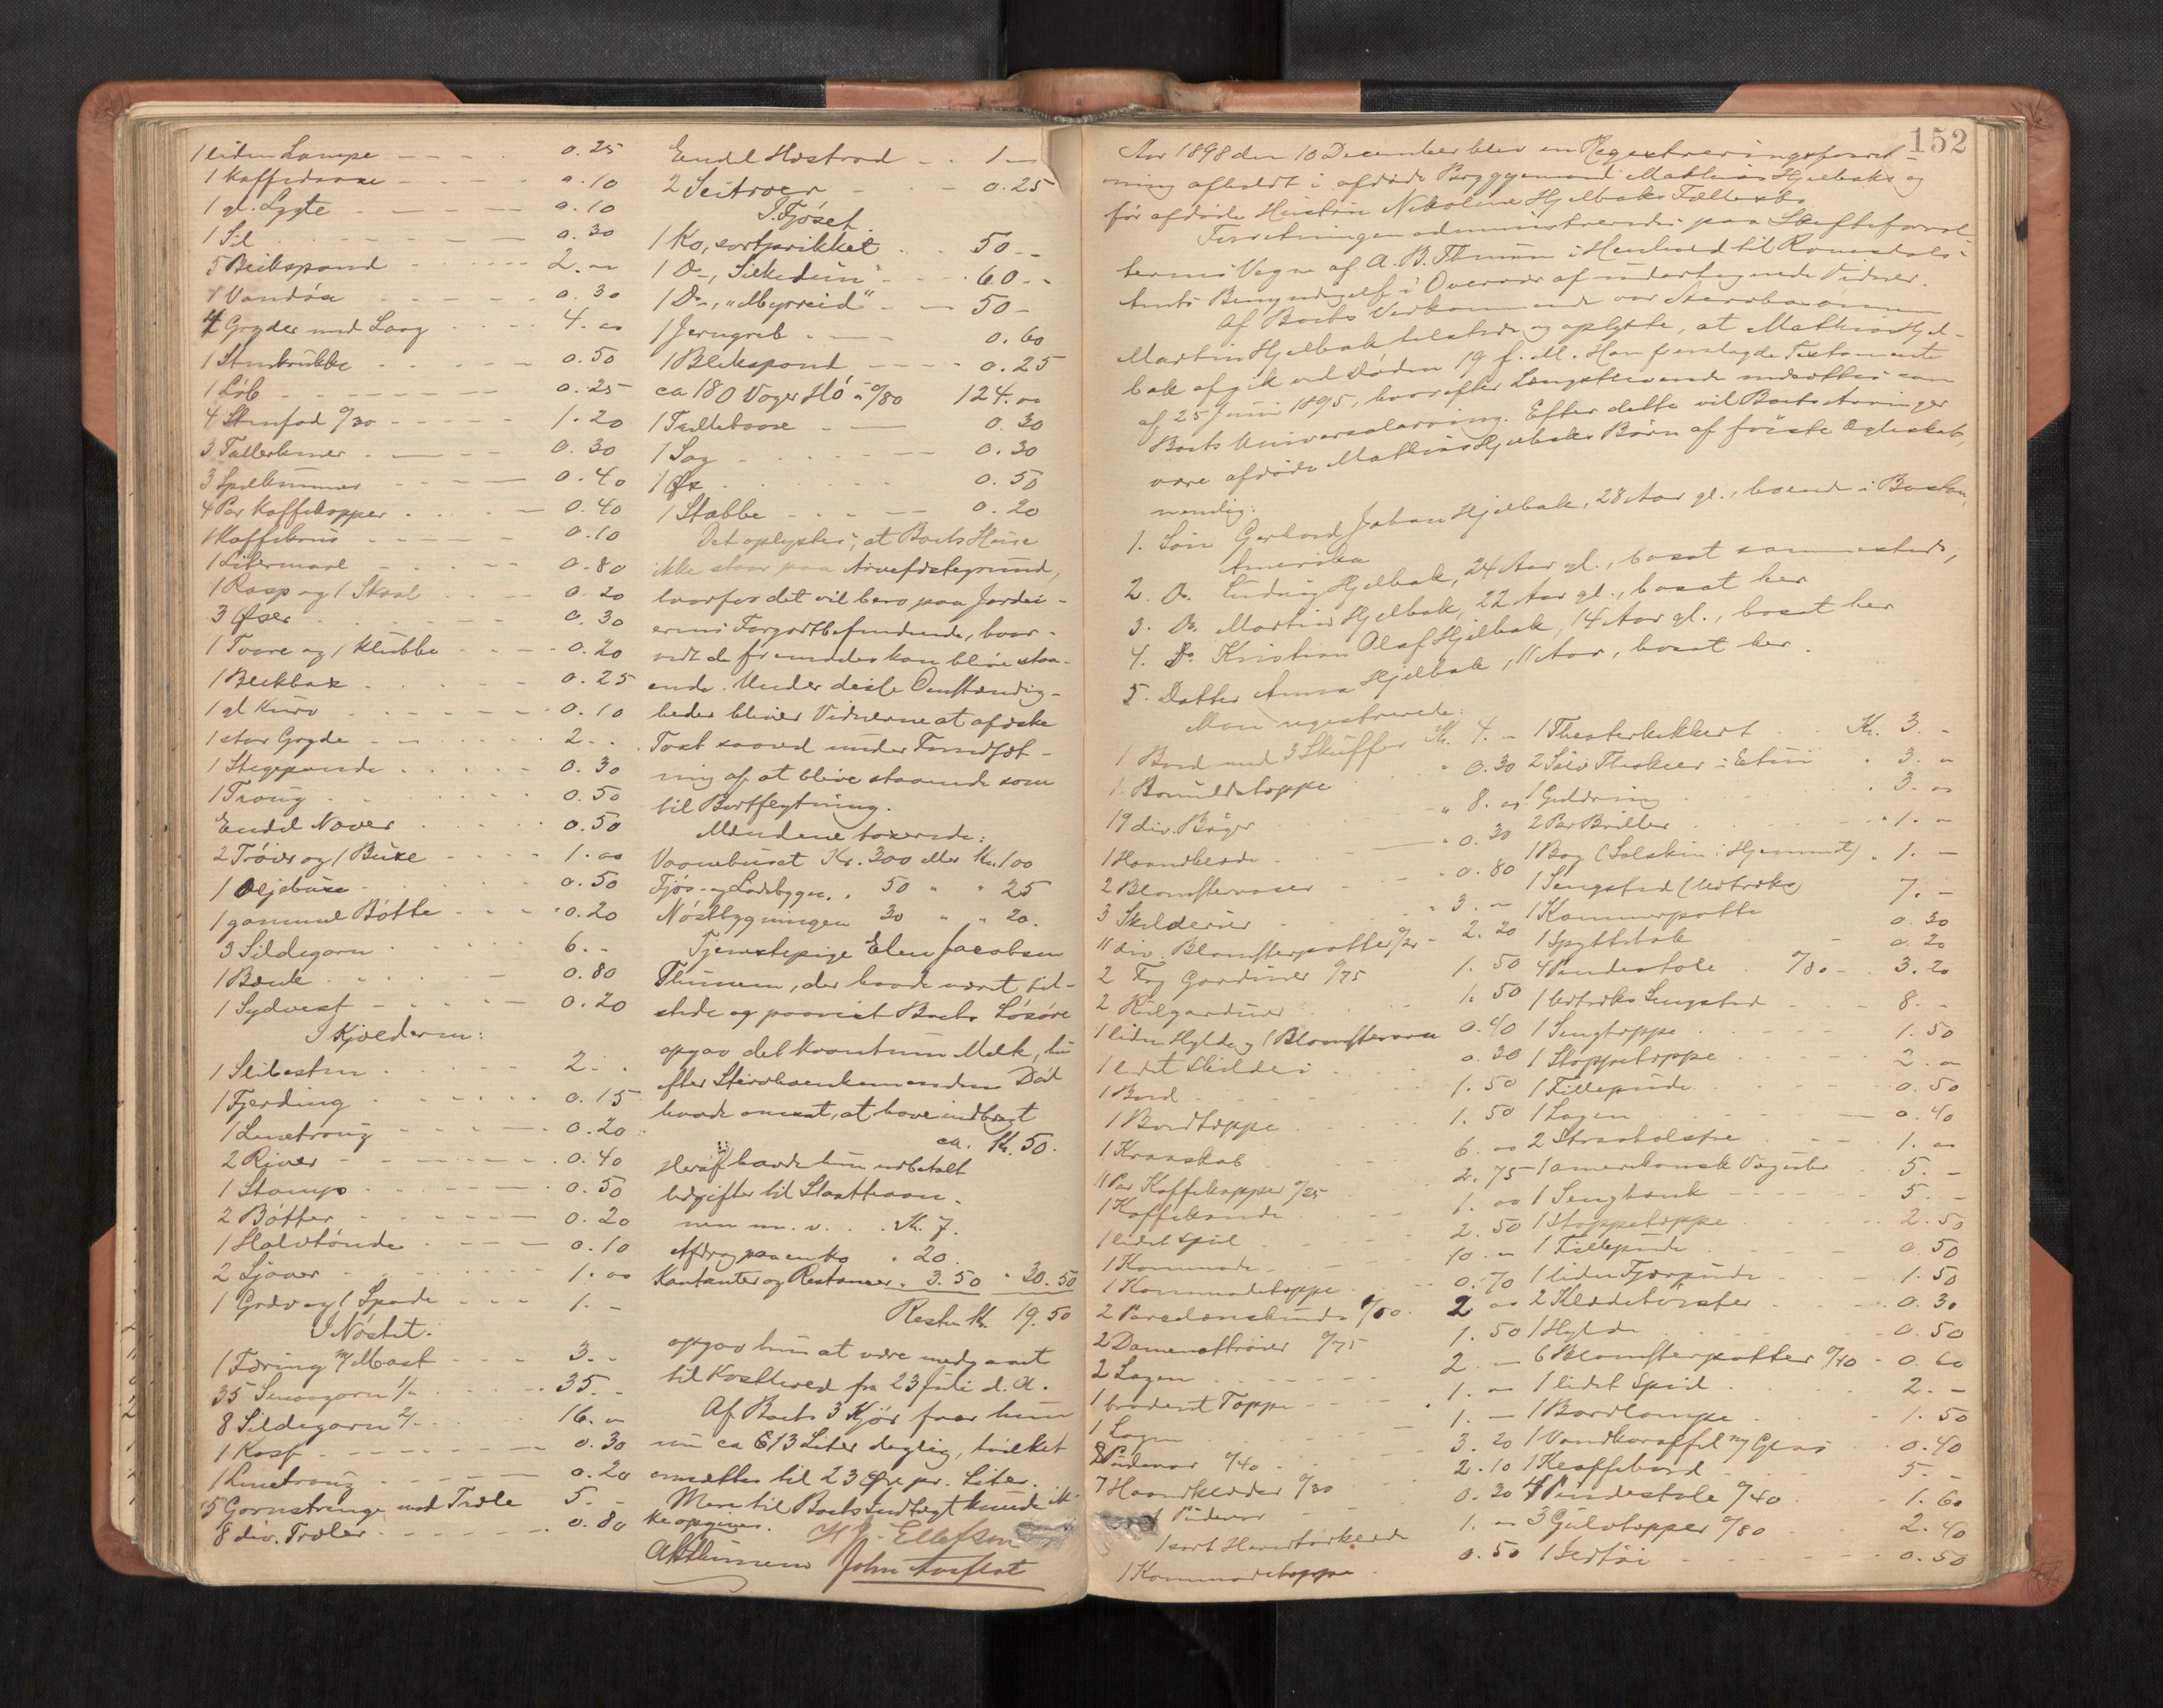 1 liden Lampe - - - 0.25
1 Kaffedaase - - - 0.10
1 gl. Lygte - - - 0.10
1 Sil - - - 0.30
5 Blikspand - - - 2.--
1 Vandøse - - - 0.30
4 Gryder med Laag - - 4.00
1 Stenkrukke - - 0.50
1 Løb - - - 0.25
4 Stenfad 0/30 - - - 1.20
3 Tallerkener - - - 0.30
3 Spilkummer - - - 0.40
4 Par Kaffekopper - - 0.40
1 Kaffekrus - - - 0.10
1 Litermaal - - - 0.80
1 Rasp og 1 Skaal - - 0.20
3 Øser - - - 0.30
1 Tvare og 1 Klubbe - - 0.20
1 Blikboks - - - 0.25
1 gl Kurv - - - 0.10
1 stor Gryde - - - 2.-
1 Stegepande - - - 0.30
1 Traug - - - 0.50
Endel Naver - - - 0.50
2 Trøier og 1 Buxe - - - 1.00
1 Oljebuxe - - - 0.50
1 gammel Bøtte - - - 0.20
3 Sildegarn - - - 6.-
1 Bænk - - - 0.80
1 Sydvest - - - 0.20
I Kjælderen:
1 Slibesten - - - 2.-
1 Fjerding - - - 0.15
1 Linetraug - - - 0.20
2 River - - - 0.40
1 Stamp - - - 0.50
2 Bøtter - - - 0.20
1 Halvtønde - - - 0.10
2 Ljaaer - - - 1.00
1 Grev og 1 Spade - - - 1.-
I Nøstet.
1 Færing m/ Mast - - - 3.-
35 Seinegarn 1/- - - - 35.-
8 Sildegarn 2/- - - - 16.-
1 Kasf - - - 0.30
1 Linetraug - - - 0.20
5 Garnstrenge med Træle 5.-
8 div. Træler - - - 0.80
Endel Hestrad - - 1-
2 Seitroer - - - 0.25
I Fjøset.
1 Ko, sortprikket - - 50--
1 Do, "Silkedun" - - 60--
1 Do, "Myrreid" - - 50-
1 Jerngreb - - - 0.60
1 Blikspand - - - 0.25
ca 180 Voger Hø à 0/80 124.00
1 Tælleboose - - 0.30
1 Sag - - - 0.30
1 Øx - - - 0.50
1 Stabbe - - - 0.20
Det oplystes, at Boets Huse
ikke staar paa Arvefæstegrund,
hvorfor det vil bero paa Jordei-
erens Forgodtbefindende, hvor-
vidt de fremdeles kan blive staa-
ende. Under disse Omstændig-
heder bliver Vidnerne at afæske
Taxt saavel under Forudsæt-
ning af at blive staaende som
til Bortflytning.
Mændene taxerede:
Vaanehuset Kr. 300 eller Kr. 100
Fjøs- og Ladebygn. " 50 " " 25
Nøstbygningen 30 " " 20.
Tjenestepige Elen Jacobsen
Thunem, der havde været til-
stede og paavist Boets Løsøre
opgav det Kvantum Melk, hu
efter Stervboenkemandens Død
havde omsat, at have indbragt
ca. Kr. 50.
Heraf havde hun udbetalt
Udgifter til Slaatteaan-
nen m. v. . . Kr. 7.
Afdrag paa en Ko " 20.
Kontanter og Restancer " 3.50 " 30.50
Rest Kr. 19.50
opgav hun at være medgaaet
til Kosthold fra 23 Juli d. A.
Af Boets 3 Kjør faar hun
nu ca 13 Liter daglig, hvilket
omsættes til 23 Øre pr. Liter.
Mere til Boets Indtægt kunde ik-
ke opgives.
Ellefsen
AThunem John Aasflot
152
Aar 1898 den 10 December blev en Registreringsforret-
ning afholdt i afdøde Bryggemand Mathias Hjelbaks og
før afdøde Hustru Nikoline Hjelbaks Fællesbo.
Forretningen administreredes paa Skifteforval-
terens Vegne af A. B. Thunem i Henhold til Romsdals
Amts Bemyndigelse i Overvær af undertegnede Vidner.
Af Boets Vedkommende var Stervbosønnen
Martin Hjelbak tilstede og oplyste, at Mathias Hjel-
bak afgik ved Døden 19 f. M. Han fremlagde Testamente
af 25 Juni 1895, hvorefter Længstlevende indsættes som
Boets Universalarving. Efter dette vil Boets Arvinger
være afdøde Mathias Hjelbaks Børn af første Ægteskab,
nemlig:
1. Søn Gerhard Johan Hjelbak, 28 Aar gl., boende i Boston,
Amerika
2. Do. Ludvig Hjelbak, 24 Aar gl., bosat sammesteds,
3. Do. Martin Hjelbak, 22 Aar gl., bosat her
4. Do. Kristian Olaf Hjelbak, 14 Aar gl., bosat her
5. Datter Anna Hjelbak, 11 Aar, bosat her.
Man registrerede:
1 Bord med 3 Skuffer Kr. 4.-
1 Bomuldstæppe " 0.30
19 div. Bøger " 8.00
1 Haandklæde - " 0.30
2 Blomstervaser - - " 0.80
3 Skilderier " 3.-
11 div. Blomsterpotter 0/20 - 2.20
2 Fag Gardiner 0/75 1.50
2 Rulgardiner 1.50
1 liden Hylde og 1 Blomstervase 0.40
1 lidet Skilderi 0.30
1 Bord - - - 1.50
1 Bordtæppe - - - 1.50
1 Kraaskab 6.00
11 Par Kaffekopper 0/25 2.75
1 Kaffekande - - - 1.00
1 lidet Speil - - - 2.50
1 Kommode - - - 10.-
1 Kommodetæppe 0.70
2 Paradaandunder 1/00 2.00
2 Damenattrøier 0/75 1.50
2 Lagen - - - 2.-
1 broderet Tæppe - - - 1.-
1 Lagen - - - 1.-
8 Pudevar 0/40 - - - 3.20
7 Haandklæder 0/30 2.10
Pudevar - 0.30
1 sort Hovedtørklæde 1.-
1 Kommodetæppe - 0.50
1 Theaterkikkert Kr. 3.-
2 Sølv Theskeer i Etui " 3.-
1 Guldring " 3.00
2 Par Briller " 1.-
1 Bog (Solskin i Hjemmet) " 1.-
1 Sengsted (Udtræks) 7.-
1 Kammerpotte 0.30
1 Spyttebak - 0.20
4 Pindestole 0/80 - 3.20
1 Udtræks Sengsted - - 8.-
1 Sengtæppe - - - 1.50
1 Stoppetæppe - - - 2.00
1 Fillepude - - - 0.50
1 Lagen - - - 0.40
2 Straabolstre - - - 1.00
1 amerikansk Vægur - 5.-
1 Sengbænk - - - 5.-
1 Stoppetæppe - - - 2.50
1 Fillepude - - - 0.50
1 liden Fjærpude - - 1.50
2 Klædebørster - - 0.30
1 Hylde - - 0.50
6 Blomsterpotter 0/10 - 0.60
1 lidet Speil - - 2.-
1 Bordlampe - - 1.50
1 Vandkaraffel m/ Glas - 0.40
1 Klaffebord - - 5.-
4 Pindestole 0/40 - 1.60
3 Gulvtæpper 0/80 - 2.40
1 Ildtøi - - - 0.50